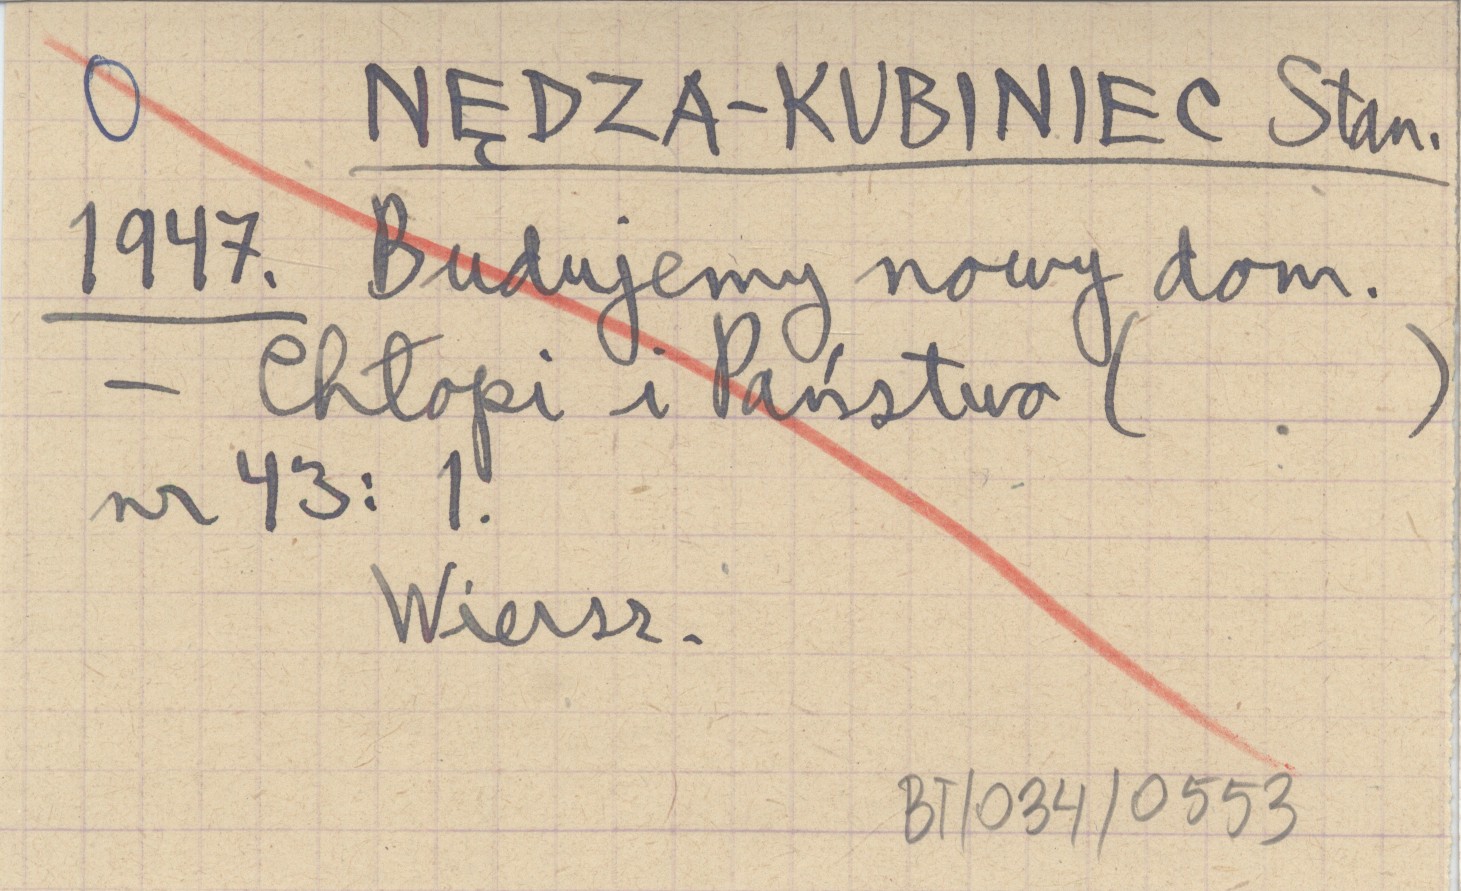 0 NĘDZA-KUBINIEC Stan.
1947. Budujemy nowy dom.
- Chłopi i Państwo ( )
nr 43: 1.
Wiersz.
BT/034/0553